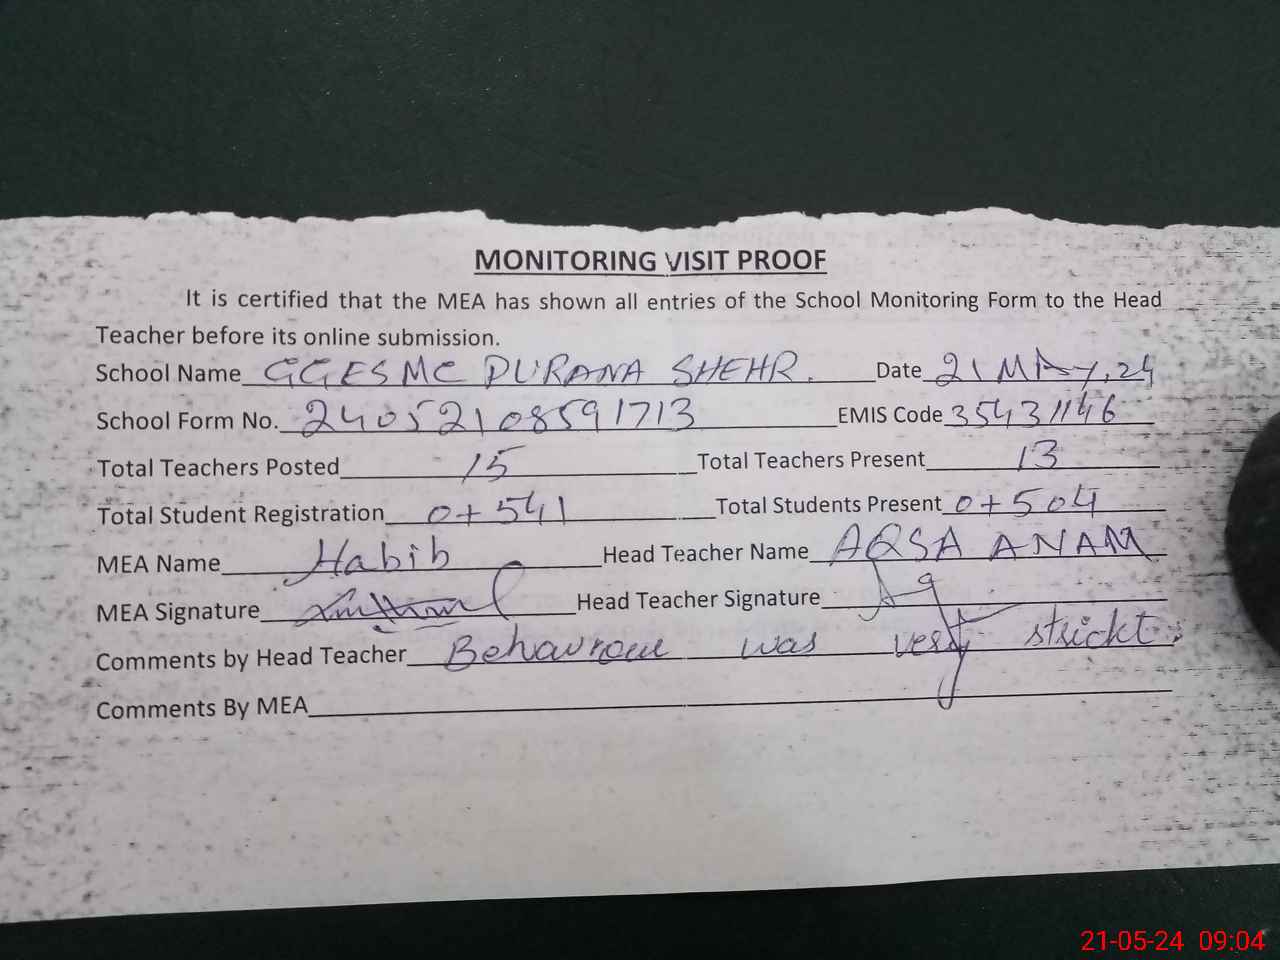 MONITORING VISIT PROOF
It is certified that the MEA has shown all entries of the School Monitoring Form to the Head
Teacher before its online submission.
School Name GGES MC PURANA SHEHR. Date 21 MAy, 24
School Form No. 24052108591713 EMIS Code 35431146
Total Teachers Posted 15 Total Teachers Present 13
Total Student Registration 0+541 Total Students Present 0+504
MEA Name Habib Head Teacher Name AQSA ANAM
MEA Signature Head Teacher Signature
Comments by Head Teacher Behaviour was very strickt.
Comments By MEA
21-05-24 09:04